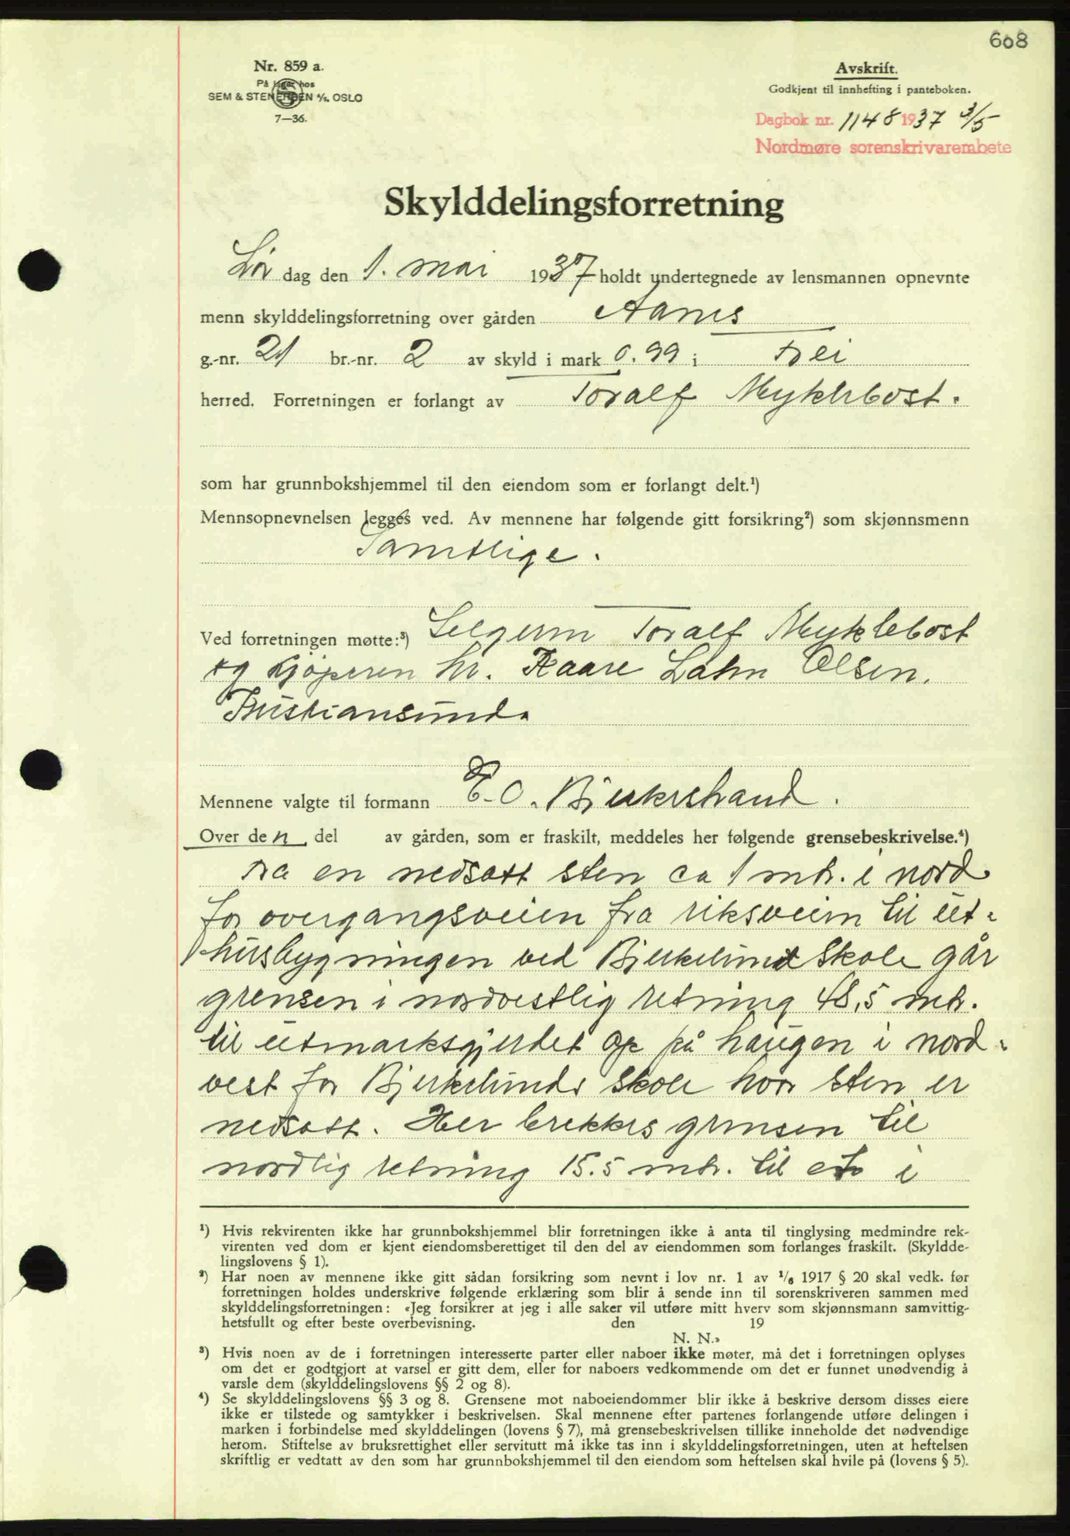 608
Nr. 859 a.
På lager hos
SEM & STENERSEN A/S, OSLO
7—36.
Avskrift.
Godkjent til innhefting i panteboken.
Dagbok nr. 1148 1937 3/5
Nordmøre sorenskrivarembete
Skylddelingsforretning
Lør dag den 1. mai 1937 holdt undertegnede av lensmannen opnevnte
menn skylddelingsforretning over gården Aanes
g.-nr. 21 br.-nr. 2 av skyld i mark 0.99 i Frei
herred. Forretningen er forlangt av Toralf Myklebost.
som har grunnbokshjemmel til den eiendom som er forlangt delt.¹)
Mennsopnevnelsen legges ved. Av mennene har følgende gitt forsikring²) som skjønnsmenn
Samtlige.
Ved forretningen møtte:³) Selgeren Toralf Myklebost
og kjøperen hr. Kaare Lahn Olsen,
Kristiansund.
Mennene valgte til formann E. O. Bjerkestrand.
Over den del av gården, som er fraskilt, meddeles her følgende grensebeskrivelse.⁴)
Fra en nedsatt sten ca 1 mtr. i nord
for overgangsveien fra riksveien til ut-
husbygningen ved Bjerkelund Skole går
grensen i nordvestlig retning 48,5 mtr.
til utmarksgjerdet op på haugen i nord-
vest for Bjerkelunds Skole hvor sten er
nedsatt. Her brekkes grensen til
nordlig retning 15.5 mtr. til et i
¹) Hvis rekvirenten ikke har grunnbokshjemmel blir forretningen ikke å anta til tinglysing medmindre rek-
virenten ved dom er kjent eiendomsberettiget til den del av eiendommen som forlanges fraskilt. (Skyldde-
lingslovens § 1).
²) Har noen av mennene ikke gitt sådan forsikring som nevnt i lov nr. 1 av ¹/₆ 1917 § 20 skal vedk. før
forretningen holdes underskrive følgende erklæring som blir å sende inn til sorenskriveren sammen med
skylddelingsforretningen: «Jeg forsikrer at jeg i alle saker vil utføre mitt hverv som skjønnsmann samvittig-
hetsfullt og efter beste overbevisning. den 19
N. N.»
³) Hvis noen av de i forretningen interesserte parter eller naboer ikke møter, må det i forretningen oplyses
om det er godtgjort at varsel er gitt dem, eller for naboers vedkommende om det er funnet unødvendig å
varsle dem (skylddelingslovens §§ 2 og 8).
⁴) Se skylddelingslovens §§ 3 og 8. Grensene mot naboeiendommer blir ikke å beskrive dersom disses eiere
ikke er tilstede og samtykker i beskrivelsen. Skal mennene efter partenes forlangende utføre delingen i
marken i forbindelse med skylddelingen (lovens § 7), må grensebeskrivelsen tillike inneholde det nødvendige
herom. Stiftelse av bruksrettighet eller servitutt må ikke tas inn i skylddelingsforretningen, uten at heftelsen
skriftlig er vedtatt av den som har grunnbokshjemmel til den eiendom som heftelsen skal hvile på (lovens § 5).